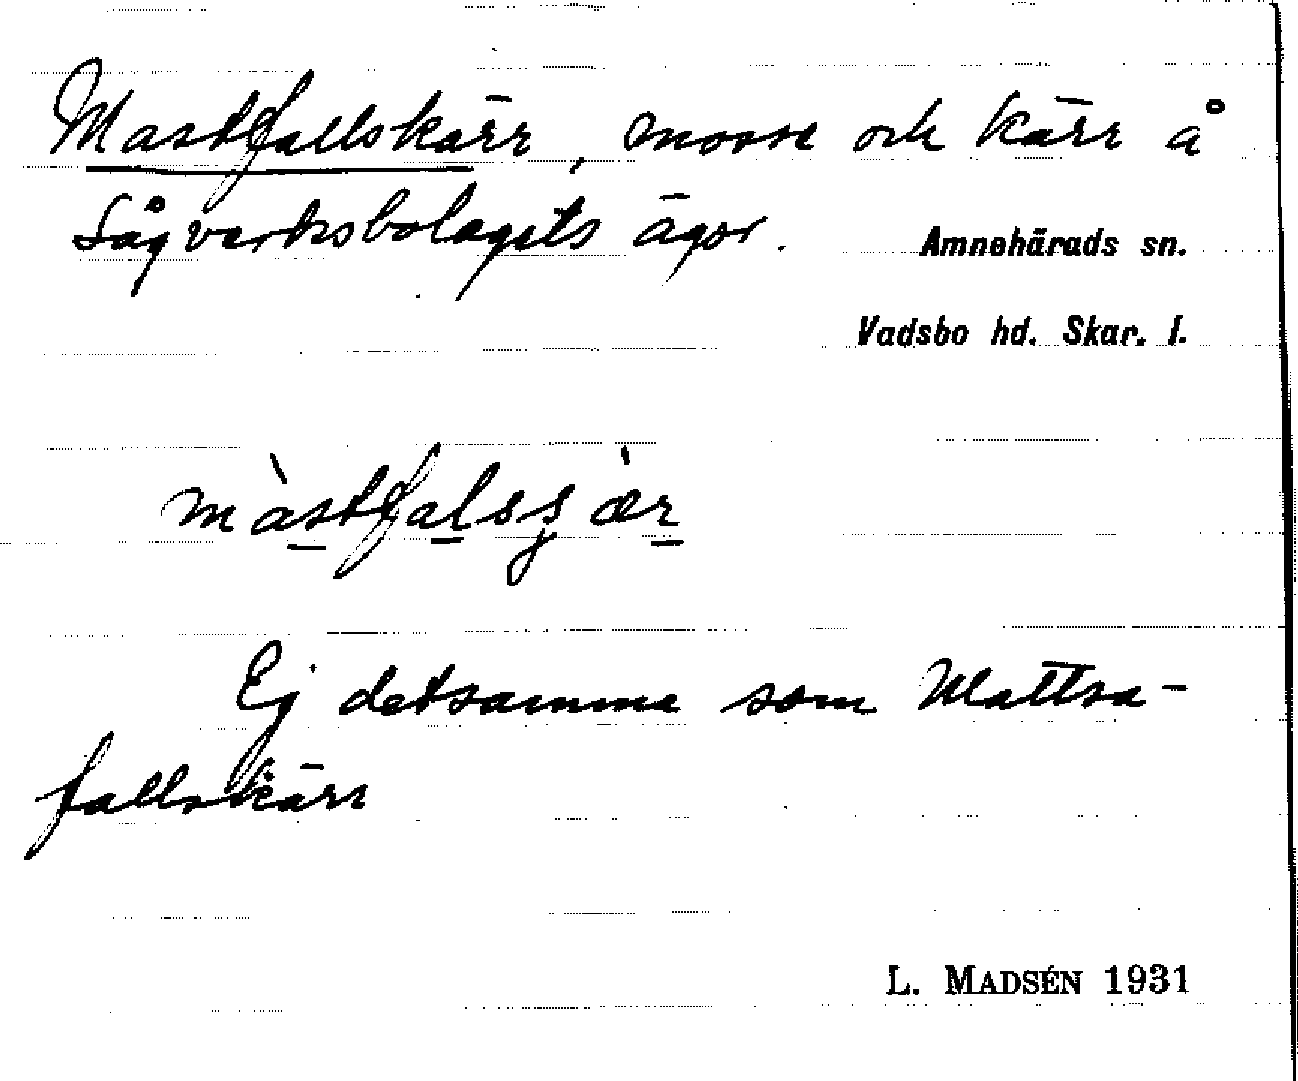 Mastfallskärr, mosse och kärr å
Sågverksbolagets ägor. Amnehärads sn.
Vadsbo hd. Skar. l.
màstfalsʂæ̀r
Ej detsamma som Mattsa-
fallskärr
L. MADSÉN 1931